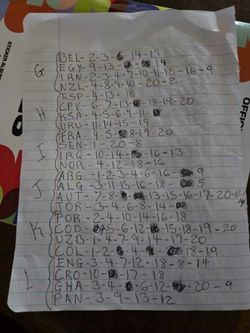 BEL-2-3-14-19
G EGY-9-13-14
IRN-2-3-4-7-10-11-12-16-9
NZL-4-8-9-10-20-2
-3-9-18
CPV-6-7-13-18-19-20
H KSA-4-5-6-9-11-
URU-11-14-15-19
FRA-4-5-8-19-20
I SEN-1-20-8
IRQ-10-14-16-13
NOR-4-12-18-16
ARG-1-2-3-4-6-16-9
J ALG-3-11-15-16-18-5
AUT-7-8-13-15-16-17-20-
19
JOR-3-4-6-8-14
POR-2-4-10-14-16-18
K COD-45-6-12-15-18-19-20
UZB-1-4-7-9-14-17-20
COL-1-2-4-9-18-19
ENG-3-4-7-12-18-8-14
L CRO-10-17-18
GHA-3-4-6-12-20-9
PAN-3-9-13-12